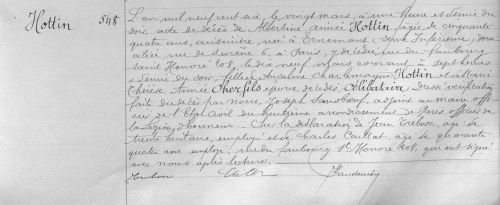 Hottin 548
L'an mil neuf cent six le vingt mars, à une heure et demie du
soir, acte de décès de Albertine Aimée Hottin âgée de cinquante
quatre ans, cuisinière, née à Ernemont (Seine Inférieure), domi-
ciliée rue de Surène 6, à Paris, y décédée rue du faubourg
saint Honoré 208, le dix neuf mars courant à sept heures
et demie du soir, fille de Anselme Charlemagne Hottin et de Marie
Thérèse Aimée Cherfils époux décédés, Célibataire. Dressé vérification
faite du décès par nous, Joseph Sansboeuf, adjoint au maire offi-
cier de l'Etat civil du huitième arrondissement de Paris officier de
la Légion d'honneur. Sur la déclaration de Jean âgé de
trente huit ans, employé et de Charles Caillat âgé de quarante
quatre ans employé rue du faubourg St Honoré 208, qui ont signé
avec nous après lecture.